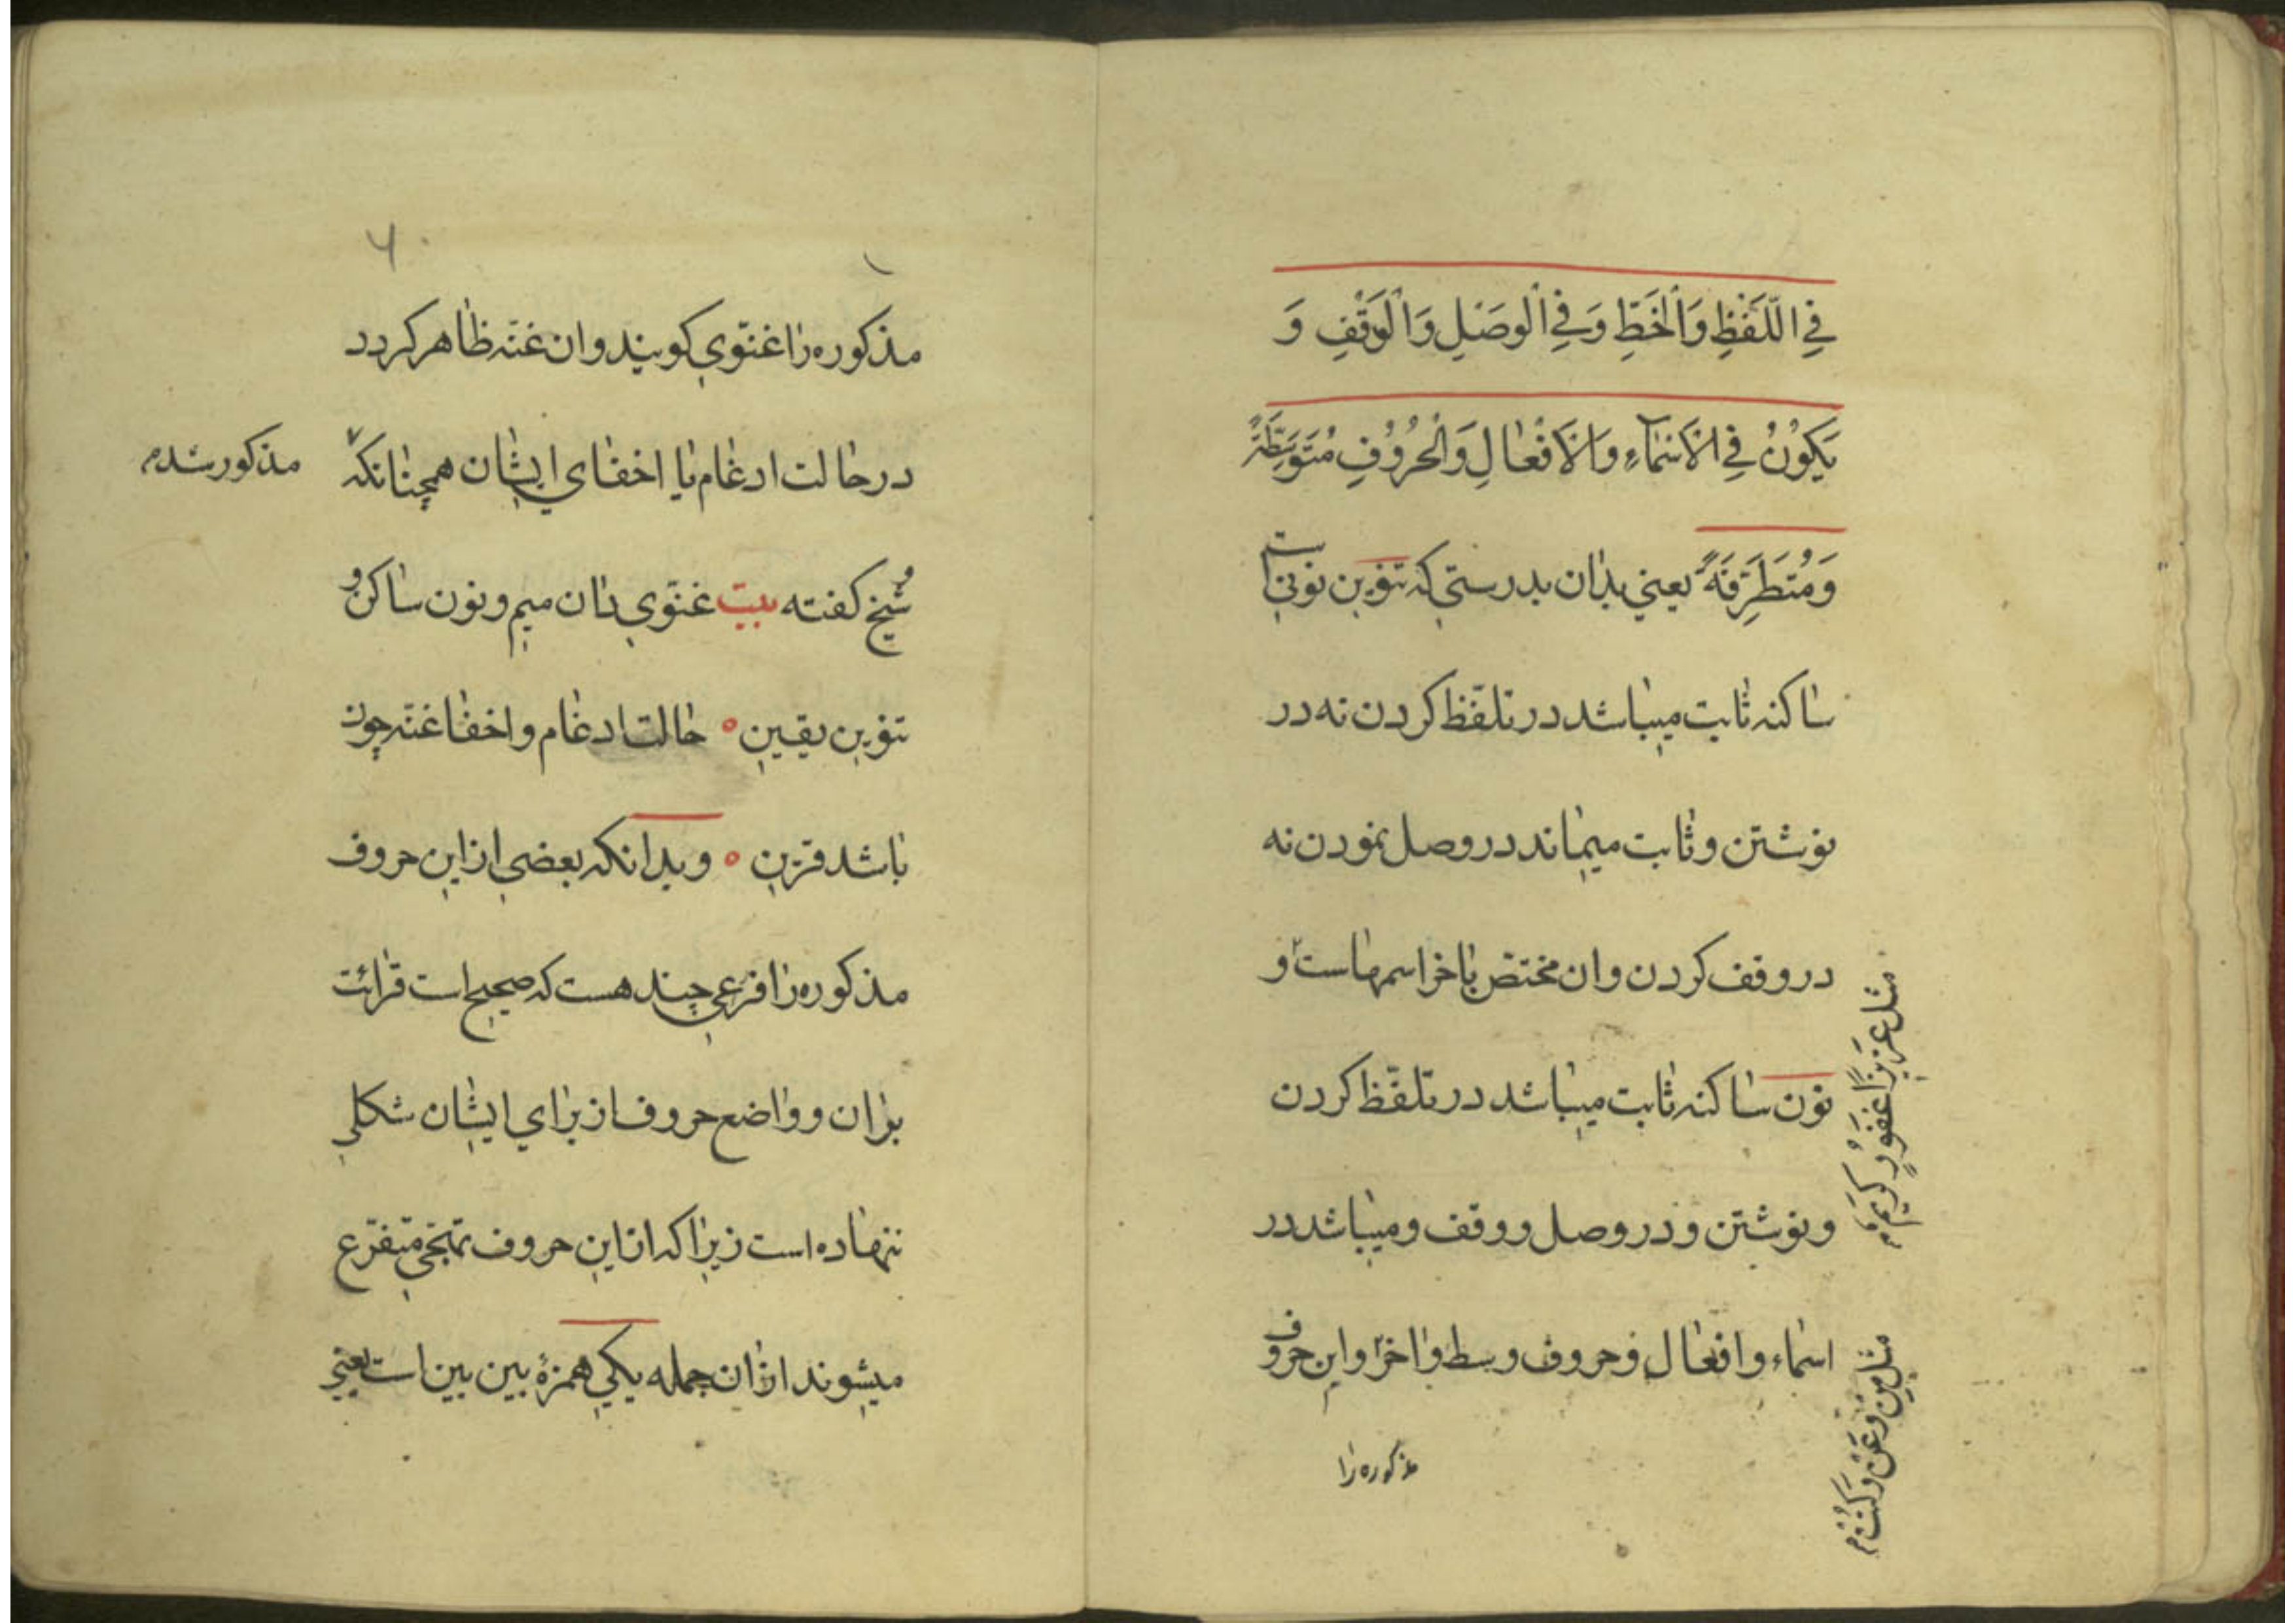 فِي اللَّفْظِ وَالْخَطِّ وَفِي الْوَصْلِ وَالْوَقْفِ وَ
يَكُوْنُ فِي الْاَسْمَآءِ وَالْاَفْعَالِ وَالْحُرُوْفِ مُتَوَسِّطَةً
وَمُتَطَرِّفَةً يعني بدان بدرستي كه تنوين نونيست
ساكنه ثابت ميباشد در تلفّظ كردن نه در
نوشتن وثابت ميماند در وصل نمودن نه
در وقف كردن وان مختصّ باخر اسمهاست و
نون ساكنه ثابت ميباشد در تلفّظ كردن
ونوشتن ودر وصل ووقف وميباشد در
اسماء وافعال وحروف وسط واخر واين حروف
مذكوره را
مثل عَزِيزًا غَفُورٌ كَرِيمٌ م
مثل مِنْ وَعَنْ وَكُنْتُمْ م
مذكوره را غنّوي كويند وان غنّه ظاهر كردد
در حالت ادغام يا اخفاي ايشان همچنانكه
مذكور شد م
شيخ كفته بيت غنّوي دان ميم ونون ساكن و
تنوين يقين ۰ حالت ادغام واخفا غنّه چون
باشد قرين ۰ وبدانكه بعضي از اين حروف
مذكوره را فرعي چند هست كه صحيح است قرائت
بران وواضع حروف از براي ايشان شكلي
ننهاده است زيرا كه از اين حروف تهجّي متفرّع
ميشوند ازان جمله يكي همزهٔ بين بين است يعني